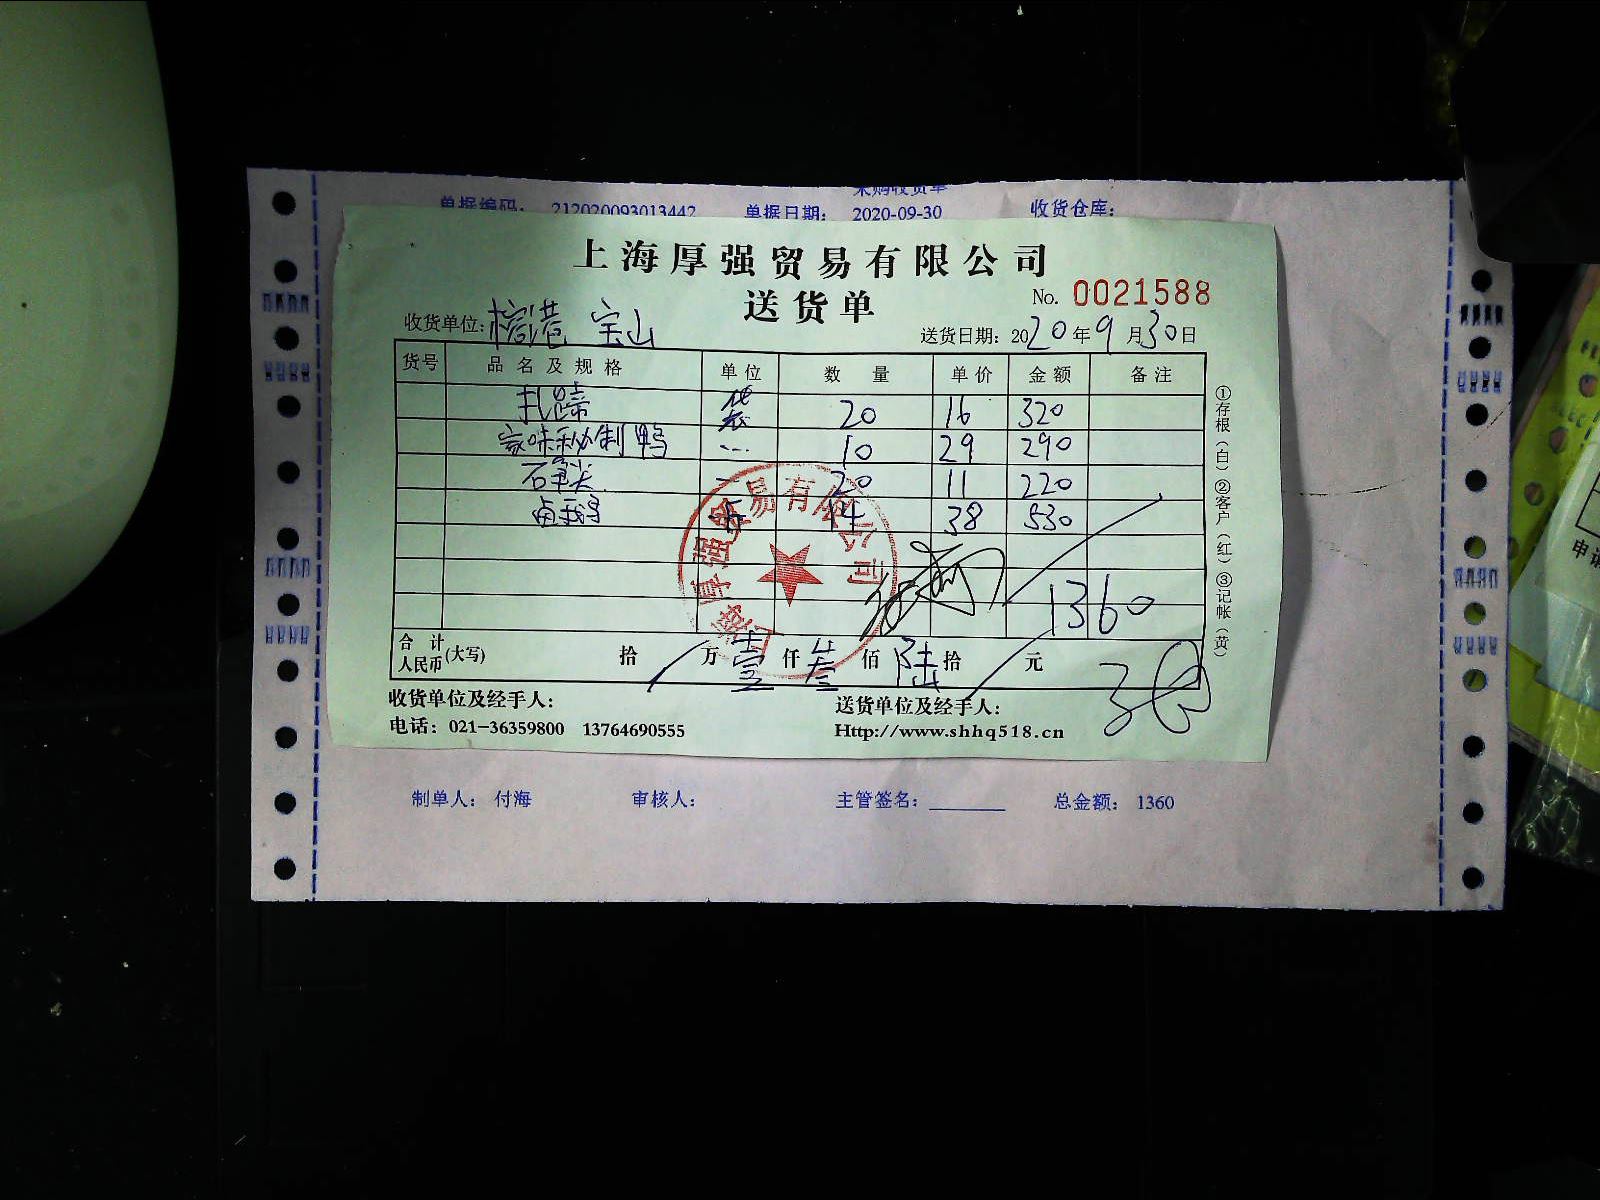 采购收货单
单据编码: 212020093013442 单据日期: 2020-09-30 收货仓库:
上海厚强贸易有限公司
送货单 No. 0021588
收货单位: 宝山 送货日期: 2020年9月30日
货号 品名及规格 单位 数量 单价 金额 备注
扎蹄 袋 20 16 320
家味秘制鸭 10 29 290
20 11 220
卤鹅 14 38 530
1360
合计人民币(大写) 拾 万 壹 仟 叁 佰 陆 拾 元
收货单位及经手人: 送货单位及经手人:
电话: 021-36359800 13764690555 Http://www.shhq518.cn
①存根(白)②客户(红)③记帐(黄)
制单人: 付海 审核人: 主管签名: 总金额: 1360
申请